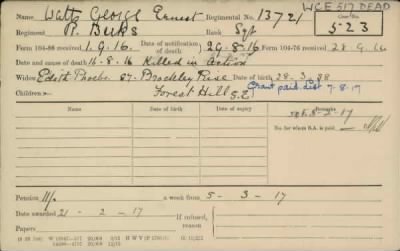 WCE 517 DEAD
Name Watts George Ernest Regimental No. 13721
Regiment R. Berks Rank Sgt 523
Form 104-88 received 1.9.16. Date of notification of death 29-8-16 Form 104-76 received 28.9.16
Date and cause of death 16-8-16 Killed in action
Widow Edith Phoebe 87. Brockley Rise Date of birth 28-3-88
Children:- Forest Hill S.E. Grant paid 7-8-17
Name Date of birth Date of expiry Remarks
5-2-17
No. for whom S.A. is paid
Pension 11/- a week from 5-3-17
Date awarded 21-2-17 If refused,
Papers reason